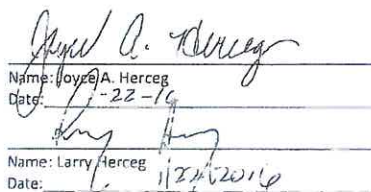 Joyce A. Herceg
Name: Joyce A. Herceg
Date: -22-16
Name: Larry Herceg
Date: 1/22/2016